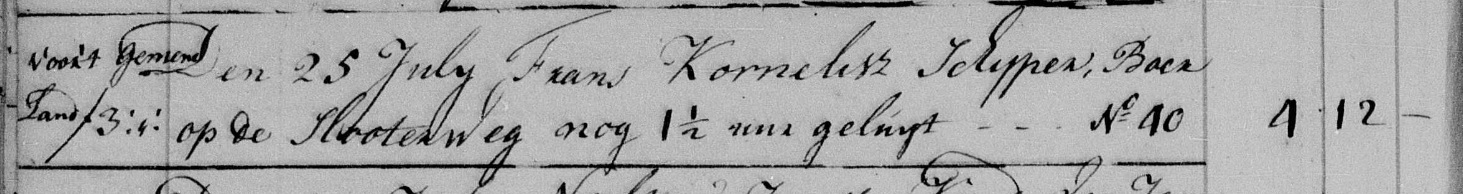 voor't Gemene Den 25 July Frans Kornelisz Schipper, Boer
Land f 3:": op de Slooterweg nog 1½ uur geluyt - - - No 40 4 12 -